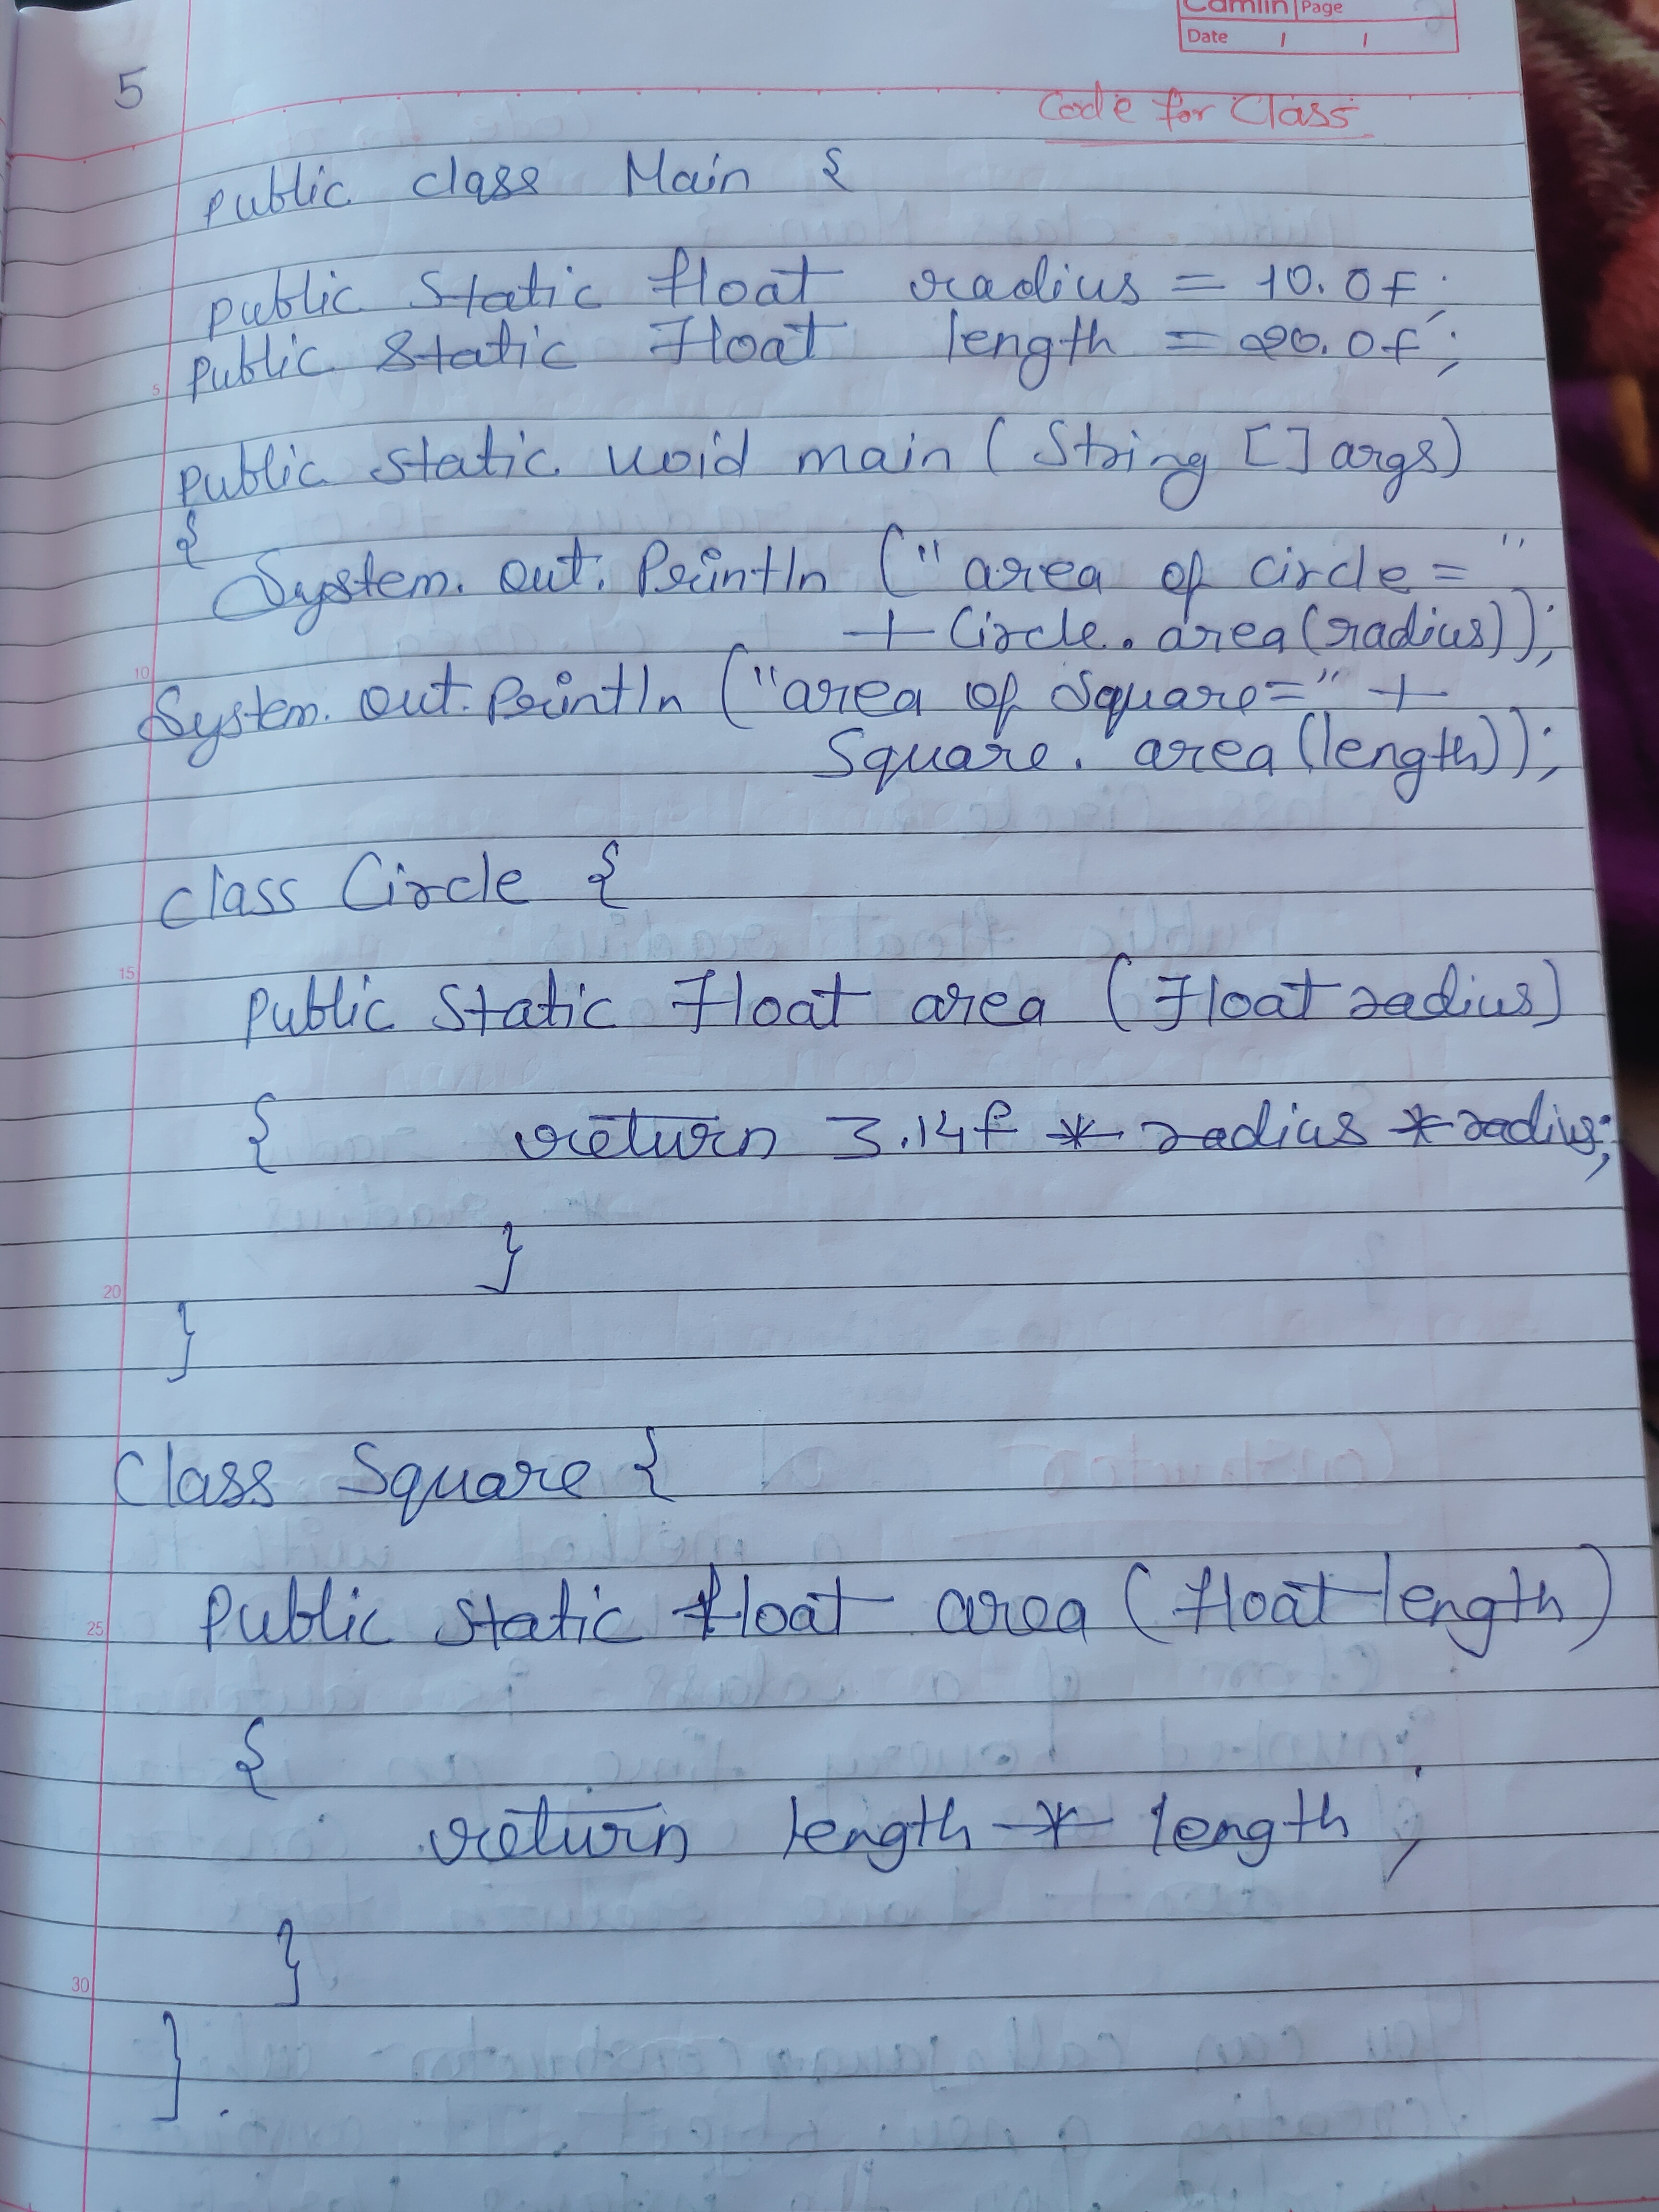 Camlin Page
Date / /
5
Code for Class
public class Main {
public static float radius = 10.0f;
public static float length = 20.0f;
public static void main (String [] args)
{
System.out.Println ("area of circle = "
+ Circle.area(radius));
System.out.Println ("area of Square=" +
Square.area(length));
class Circle {
public static float area (float radius)
{ return 3.14f * radius * radius;
}
}
Class Square {
Public static float area (float length)
{
return length * length ;
}
}